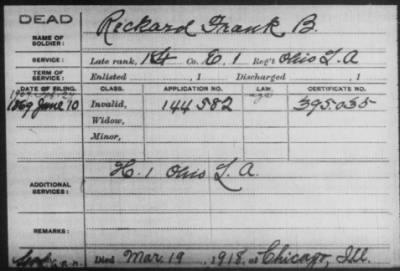 DEAD
NAME OF SOLDIER:
Reckard Frank B.
SERVICE:
Late rank, Co. E, 1 Reg't Ohio L A
TERM OF SERVICE:
Enlisted , 1 Discharged , 1
DATE OF FILING. CLASS. APPLICATION NO. LAW. CERTIFICATE NO.
1869 June 10 Invalid, 144582 395.035
Widow,
Minor,
ADDITIONAL SERVICES:
H. 1 Ohio L. A.
REMARKS:
Died Mar. 19, 1918, at Chicago, Ill.